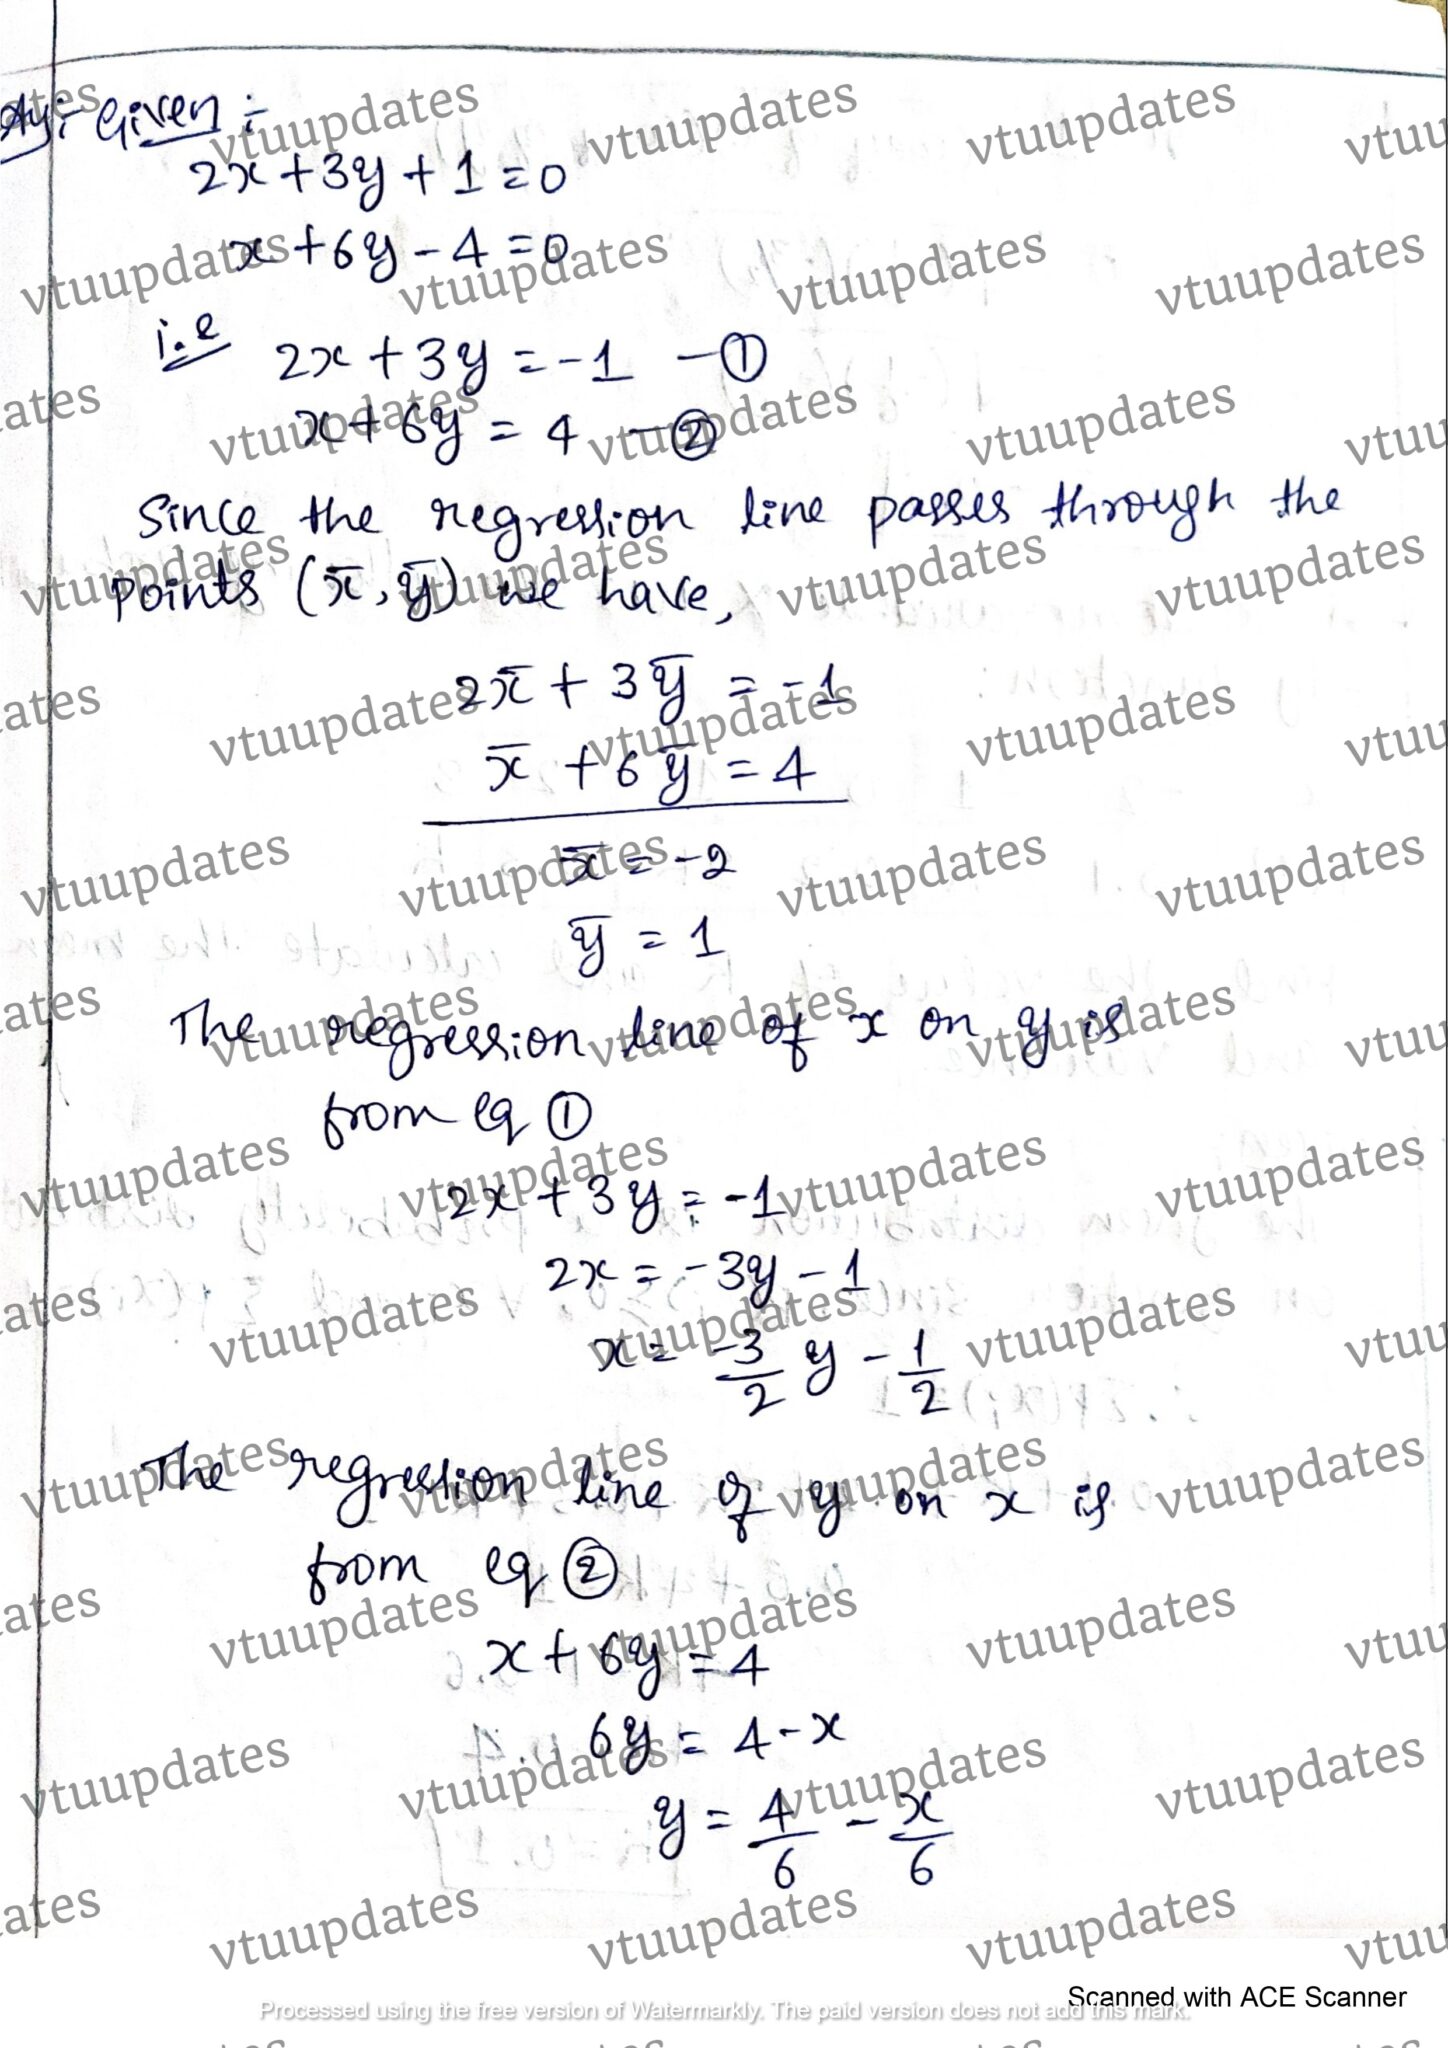 Given :-
2x + 3y + 1 = 0
x + 6y - 4 = 0
i.e 2x + 3y = -1 - ①
x + 6y = 4 - ②
Since the regression line passes through the
points (x̄, ȳ) we have,
2x̄ + 3ȳ = -1
x̄ + 6ȳ = 4
x̄ = -2
ȳ = 1
The regression line of x on y is
from eq ①
2x + 3y = -1
2x = -3y - 1
x = -3/2 y - 1/2
The regression line of y on x is
from eq ②
x + 6y = 4
6y = 4 - x
y = 4/6 - x/6
Scanned with ACE Scanner
Processed using the free version of Watermarkly. The paid version does not add this mark.
vtuupdates